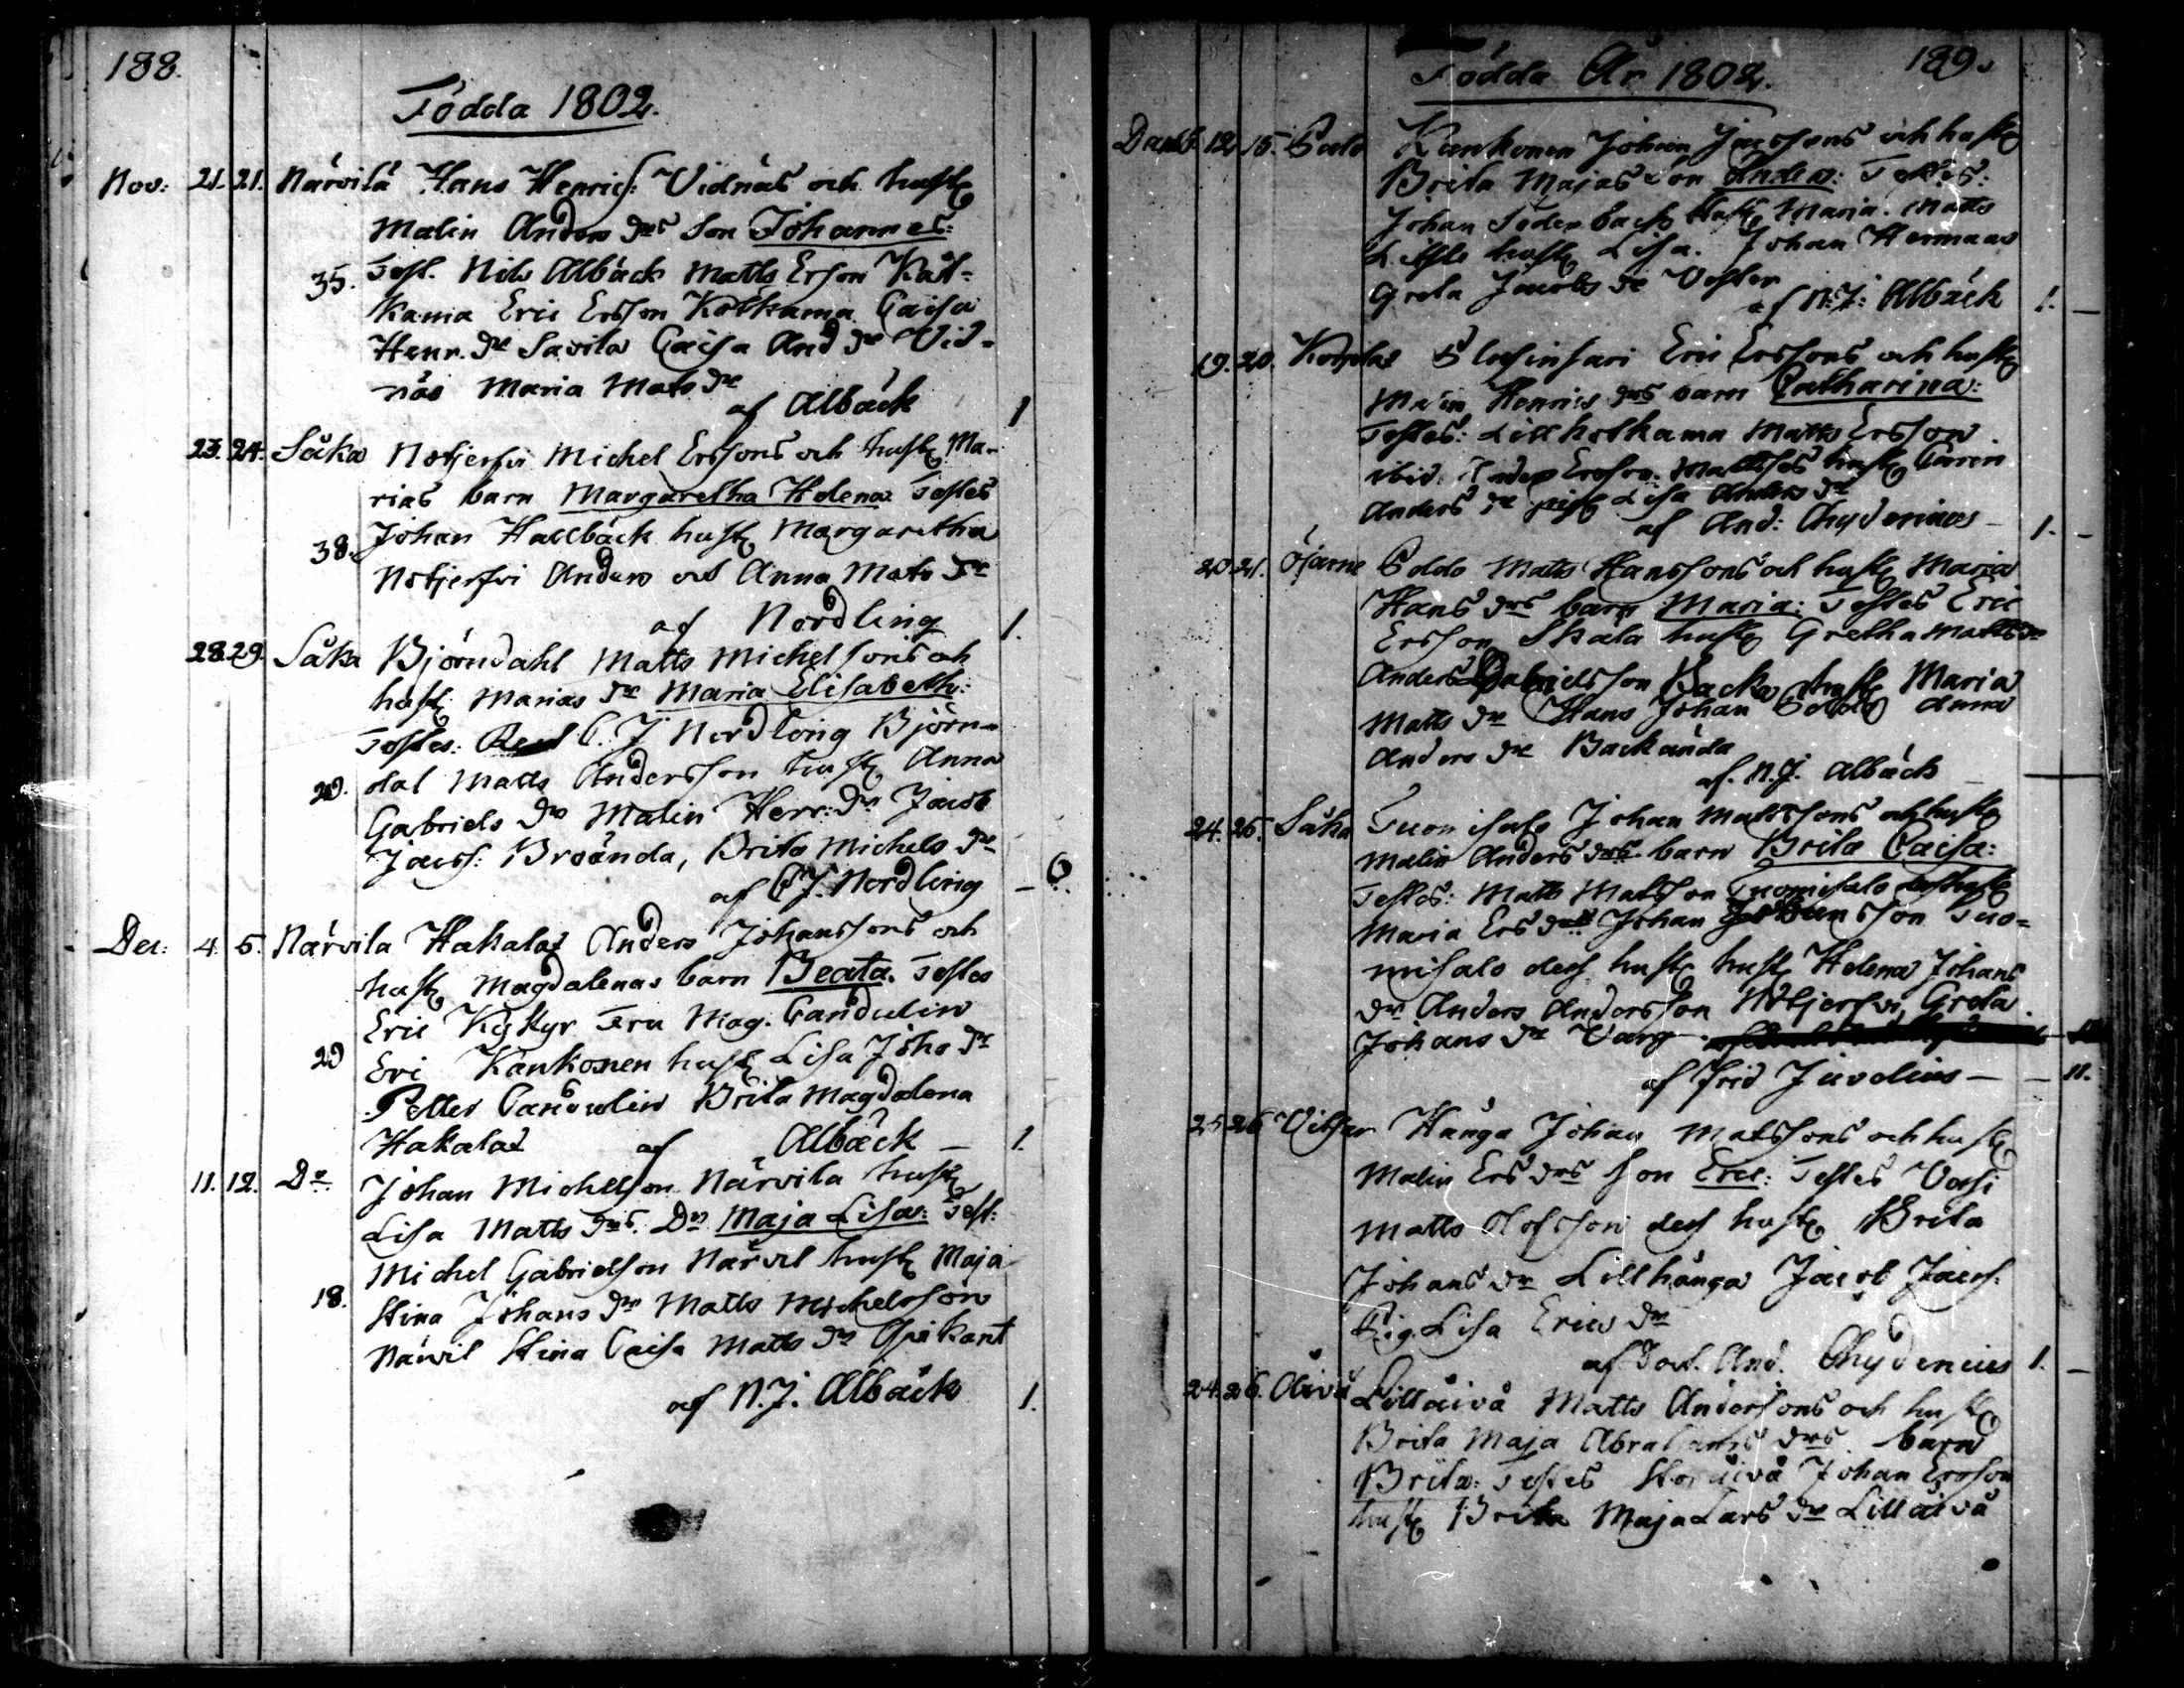 188.
Födda 1802.
Nov: 21. 21. Närvilä Hans Henrics: Vidnäs och hust
Malin Anders drs Son Johannes:
35. Test. Nils Albäck Matts Erson Kåt-
kama Eric Ersson Kotkama Caisa
Henr. dr Savila Caisa And dr Vid-
näs Maria Mats dr
af Albäck 1
23. 24. Såka Notjerfvi Michel Erssons och hust Ma-
rias barn Margaretha Helena Testes
38. Johan Hallbäck hust Margaretha
Notjerfvi Anders och Anna Mats dr
af Nordling 1.
28. 29. Såka Björndahl Matts Michelsons och
hust Marias dr Maria Elisabeth:
Testes: C. J Nordling Björn-
20. dal Matts Andersson hust Anna
Gabriels dr Malin Henr: dr Jacob
Jacss: Broända, Brita Michels dr
af C J. Nordling - 6.
Dec: 4. 5. Närvila Hakalax Anders Johanssons och
hust Magdalenas barn Beata. Testes
Eric Kykyr Fru Mag. Candulin
29 Eri Kankonen hust Lisa Johs dr
Petter Candulin Brita Magdalena
Hakalax af Albäck - 1.
11. 12. Do Johan Michelson Närvila hust
Lisa Matts drs. Dr Maja Lisa: Test:
Michel Gabrielson Närvil hust Maja
18. Stina Johans dr Matts Michelsson
Närvil Stina Caisa Matts dr Aspikant
af N. J. Albäck 1.
Födda År 1802. 189.
12. 15. Kankonen Johan Jacssons och hust
Brita Majas son Anders: Testes:
Johan Söderbäck hust Maria. Matts
hust Lisa. Johan Hermans
Greta Jacobs dr
af N: J: Albäck 1. -
19. 20. Korplax Eric Erssons och hust
Malin Henrics drs barn Catharina:
Testes: Lillkotkama Matts Ersson.
ibid. Anders Ersson. hust Carin
Anders dr pig Lisa Anders dr
af And: Chydenius - 1. -
20. 21. Öjarne Matts Hanssons och hust Maria
Hans drs barn Maria: Testes Eric
Ersson Skala hust Gretha Matts dr
Anders Gabrielsson Backa hust Maria
Matts dr Hans Johan Anna
Anders dr Backända
af. N. J. Albäck -
24. 25. Såka Tuomisalo Johan Mattssons och hust
Malin Anders drs barn Brita Caisa:
Testes: Matts Mattson Tuomisalo dess hust
Maria Ers dr Johan Johansson Tuo-
misalo dess hust hust Helena Johans
dr Anders Andersson Notjerfvi, Greta
Johans dr Varg
af Frid Juvelius - - 11.
25 26 Vitsar Hånga Johan Matssons och hust
Malin Ers drs son Eric: Testes
Matts Olofsson dess hust Brita
Johans dr Lillhånga Jacob Jacss:
Pig. Lisa Erics dr
af Doct. And. Chydenius 1. -
24. 26. Åivå Lillåivå Matts Anderssons och hust
Brita Maja Abrahams drs barn
Brita: Testes Storåivå Johan Ersson
hust Brita Maja Lars dr Lillåivå